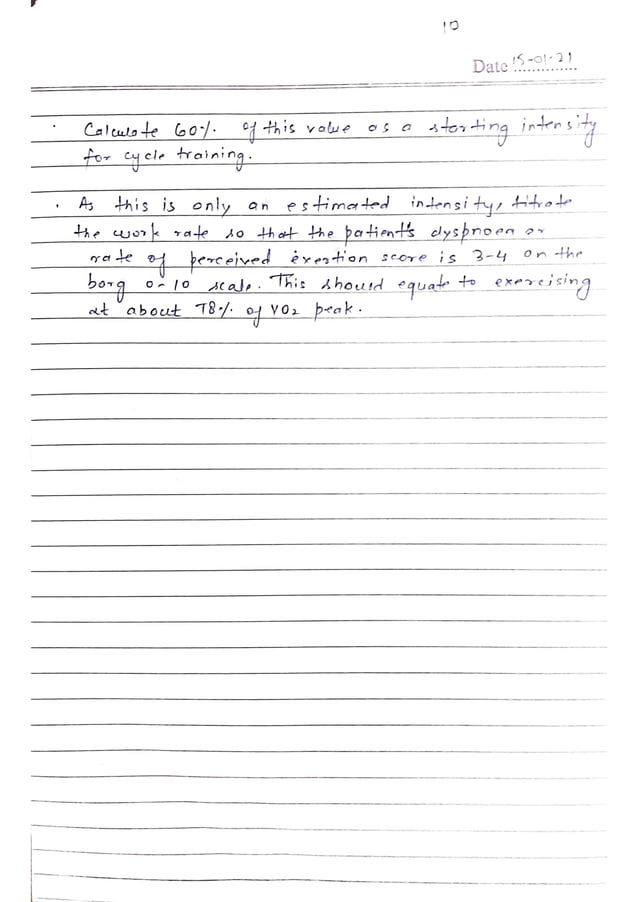 10
Date 15-01-21
· Calculate 60%. of this value as a starting intensity
for cycle training.
· As this is only an estimated intensity, titrate
the work rate so that the patient's dyspnoea or
rate of perceived exertion score is 3-4 on the
borg 0-10 scale. This should equate to exercising
at about 78%. of VO2 peak.